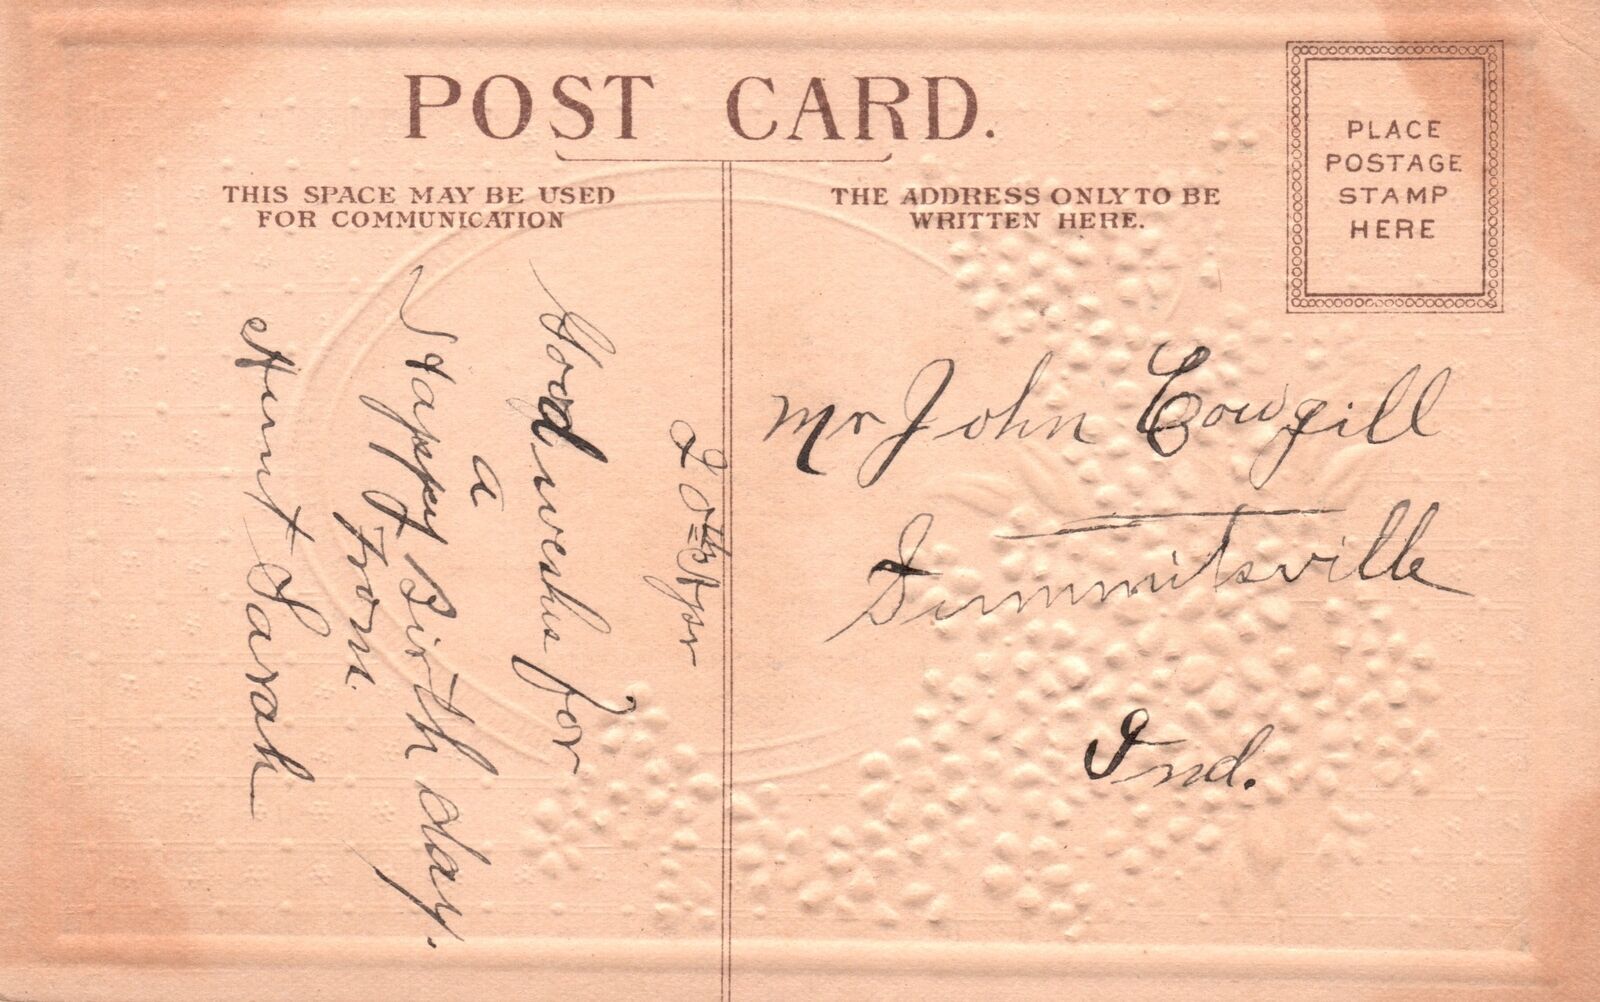 POST CARD.
THIS SPACE MAY BE USED
FOR COMMUNICATION
THE ADDRESS ONLY TO BE
WRITTEN HERE.
PLACE
POSTAGE
STAMP
HERE
20th
Good weshes for
a
Happy Birth day.
From.
Aunt Sarah
Mr John Cowgill
Summitsville
Ind.